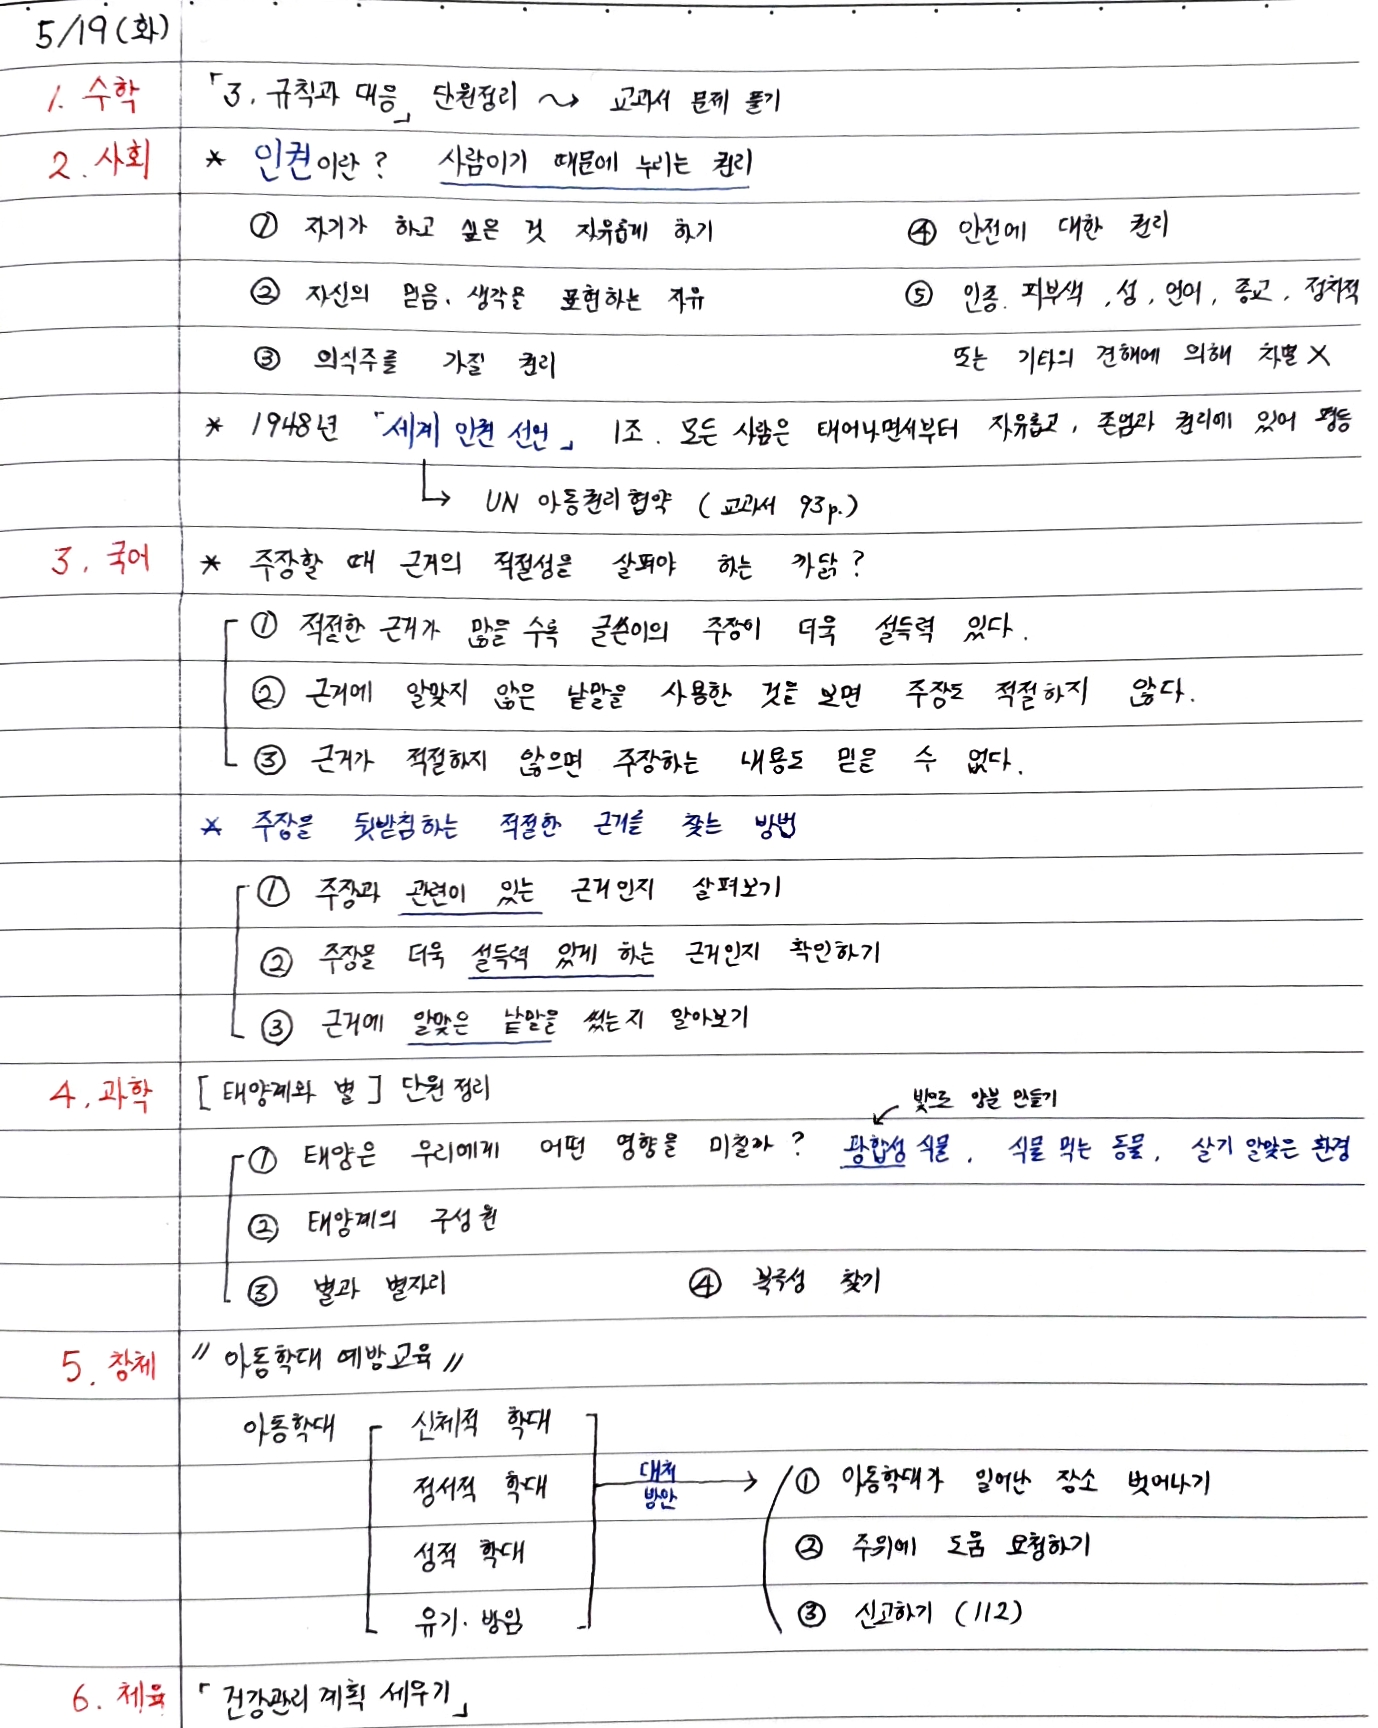 5/19(화)
1. 수학 「3. 규칙과 대응」 단원정리 ~> 교과서 문제 풀기
2. 사회 * 인권이란? 사람이기 때문에 누리는 권리
① 자기가 하고 싶은 것 자유롭게 하기 ④ 안전에 대한 권리
② 자신의 믿음, 생각을 표현하는 자유 ⑤ 인종. 피부색, 성, 언어, 종교, 정치적
③ 의식주를 가질 권리 또는 기타의 견해에 의해 차별 X
* 1948년 「세계 인권 선언」 1조. 모든 사람은 태어나면서부터 자유롭고, 존엄과 권리에 있어 평등
↳ UN 아동권리협약 (교과서 93p.)
3. 국어 * 주장할 때 근거의 적절성을 살펴야 하는 까닭?
① 적절한 근거가 많을 수록 글쓴이의 주장이 더욱 설득력 있다.
② 근거에 알맞지 않은 낱말을 사용한 것을 보면 주장도 적절하지 않다.
③ 근거가 적절하지 않으면 주장하는 내용도 믿을 수 없다.
* 주장을 뒷받침하는 적절한 근거를 찾는 방법
① 주장과 관련이 있는 근거인지 살펴보기
② 주장을 더욱 설득력 있게 하는 근거인지 확인하기
③ 근거에 알맞은 낱말을 썼는지 알아보기
4. 과학 [태양계와 별] 단원정리
빛으로 양분 만들기
① 태양은 우리에게 어떤 영향을 미칠까? 광합성 식물, 식물 먹는 동물, 살기 알맞은 환경
② 태양계의 구성원
③ 별과 별자리 ④ 북극성 찾기
5. 창체 〃아동학대 예방교육〃
아동학대 신체적 학대
정서적 학대 대처 방안 → ① 아동학대가 일어난 장소 벗어나기
성적 학대 ② 주위에 도움 요청하기
유기·방임 ③ 신고하기 (112)
6. 체육 「건강관리 계획 세우기」